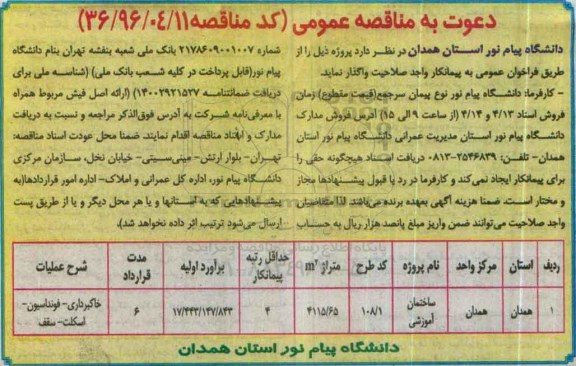 دعوت به مناقصه عمومی (کد مناقصه ۳۶/۹۶/۰۴/۱۱)
دانشگاه پیام نور استان همدان در نظر دارد پروژه ذیل را از
طریق فراخوان عمومی به پیمانکار واجد صلاحیت واگذار نماید.
- کارفرما: دانشگاه پیام نور نوع پیمان سرجمع(قیمت مقطوع) زمان
فروش اسناد ۴/۱۳ و ۴/۱۴ (از ساعت ۹ الی ۱۵) آدرس فروش مدارک
دانشگاه پیام نور استان مدیریت عمرانی دانشگاه پیام نور استان
همدان- تلفن: ۲۵۴۶۸۳۹-۰۸۱۳ دریافت اسناد هیچگونه حقی را
برای پیمانکار ایجاد نمی‌کند و کارفرما در رد یا قبول پیشنهادها مجاز
و مختار است. ضمنا هزینه آگهی بعهده برنده می‌باشد لذا متقاضیان
واجد صلاحیت می‌توانند ضمن واریز مبلغ پانصد هزار ریال به حساب
شماره ۲۱۷۸۶۰۹۰۰۱۰۰۷ بانک ملی شعبه بنفشه تهران بنام دانشگاه
پیام نور(قابل پرداخت در کلیه شعب بانک ملی) (شناسه ملی برای
دریافت ضمانتنامه ۱۴۰۰۲۹۲۱۵۲۷) (ارائه اصل فیش مربوط همراه
با معرفی‌نامه شرکت به آدرس فوق‌الذکر مراجعه و نسبت به دریافت
مدارک و اسناد مناقصه اقدام نمایند. ضمنا محل عودت اسناد مناقصه:
تهران- بلوار ارتش- مینی‌سیتی- خیابان نخل، سازمان مرکزی
دانشگاه پیام نور، اداره کل عمرانی و املاک- اداره امور قراردادها(به
پیشنهادهایی که به استانها و یا هر محل دیگر و یا از طریق پست
ارسال می‌شود ترتیب اثر داده نخواهد شد).
ردیف استان مرکز واحد نام پروژه کد طرح متراژ m² حداقل رتبه پیمانکار برآورد اولیه مدت قرارداد شرح عملیات
۱ همدان همدان ساختمان آموزشی ۱۰۸/۱ ۴۱۱۵/۶۵ ۴ ۱۷/۴۴۳/۱۴۷/۸۴۳ ۶ خاکبرداری- فونداسیون- اسکلت- سقف
دانشگاه پیام نور استان همدان